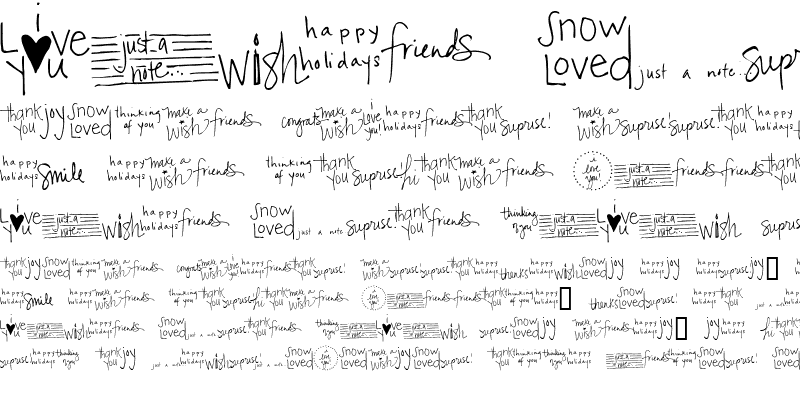 i Love you just a note... wish happy holidays friends Snow Loved just a note... Supr
thank you joy Snow Loved thinking of you make a wish friends congrats make a wish i Love you! happy holidays friends thank you Supruse! make a wish Supruse! Supruse! thank you happy holidays
happy holidays Smile happy holidays make a wish friends thinking of you thank you Supruse! hi thank you make a wish friends i love you! just a note... friends friends thank you
i Love you just a note... wish happy holidays friends Snow Loved just a note Supruse! thank you friends thinking of you i Love you just a note... wish Supruse
thank you joy Snow Loved thinking of you make a wish friends congrats make a wish i Love you! happy holidays friends thank you Supruse! make a wish Supruse! Supruse! thank you happy holidays thanks happy holidays wish Snow Loved happy holidays joy happy holidays Supruse! joy
happy holidays Smile happy holidays make a wish friends thinking of you thank you Supruse! hi thank you make a wish friends i love you! just a note... friends friends thank you thinking of you happy holidays thanks Snow Loved Supruse! thank you just a
i Love you just a note... wish happy holidays friends Snow Loved just a note Supruse! thank you friends thinking of you i Love you just a note... wish Supruse! Snow Loved joy make a wish friends happy holidays joy joy happy holidays hi
Supruse! happy holidays thinking of you thank you joy just a note happy holidays Supruse! Snow Loved i love you! Snow Loved make a wish joy Snow Loved Supruse! thank you thinking of you thank you happy holidays just a note... friends thinking of you Snow Loved Supruse! Snow Loved